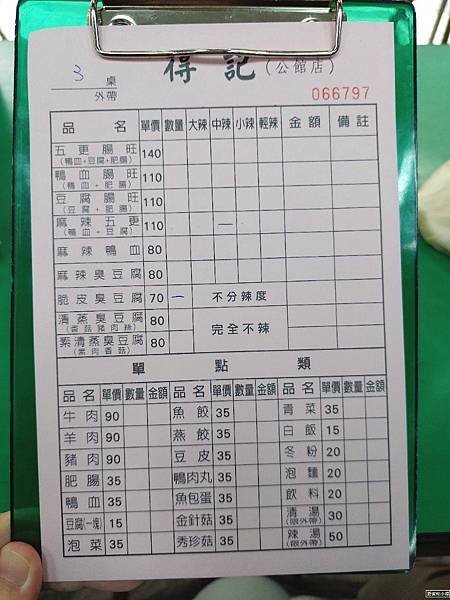 得記(公館店)
3 桌
外帶
066797
品名 單價 數量 大辣 中辣 小辣 輕辣 金額 備註
五更腸旺 140
(鴨血+豆腐+肥腸)
鴨血腸旺 110
(鴨血+肥腸)
豆腐腸旺 110
(豆腐+肥腸)
麻辣五更 110 一
(鴨血+豆腐)
麻辣鴨血 80
麻辣臭豆腐 80
脆皮臭豆腐 70 一 不分辣度
清蒸臭豆腐 80 完全不辣
(香菇豬肉絲)
素清蒸臭豆腐 80
(素肉香菇)
單點類
品名 單價 數量 金額 品名 單價 數量 金額 品名 單價 數量 金額
牛肉 90 魚餃 35 青菜 35
羊肉 90 燕餃 35 白飯 15
豬肉 90 豆皮 35 冬粉 20
肥腸 35 鴨肉丸 35 泡麵 20
鴨血 35 魚包蛋 35 飲料 20
豆腐(一塊) 15 金針菇 35 清湯(限外帶) 30
泡菜 35 秀珍菇 35 辣湯(限外帶) 50